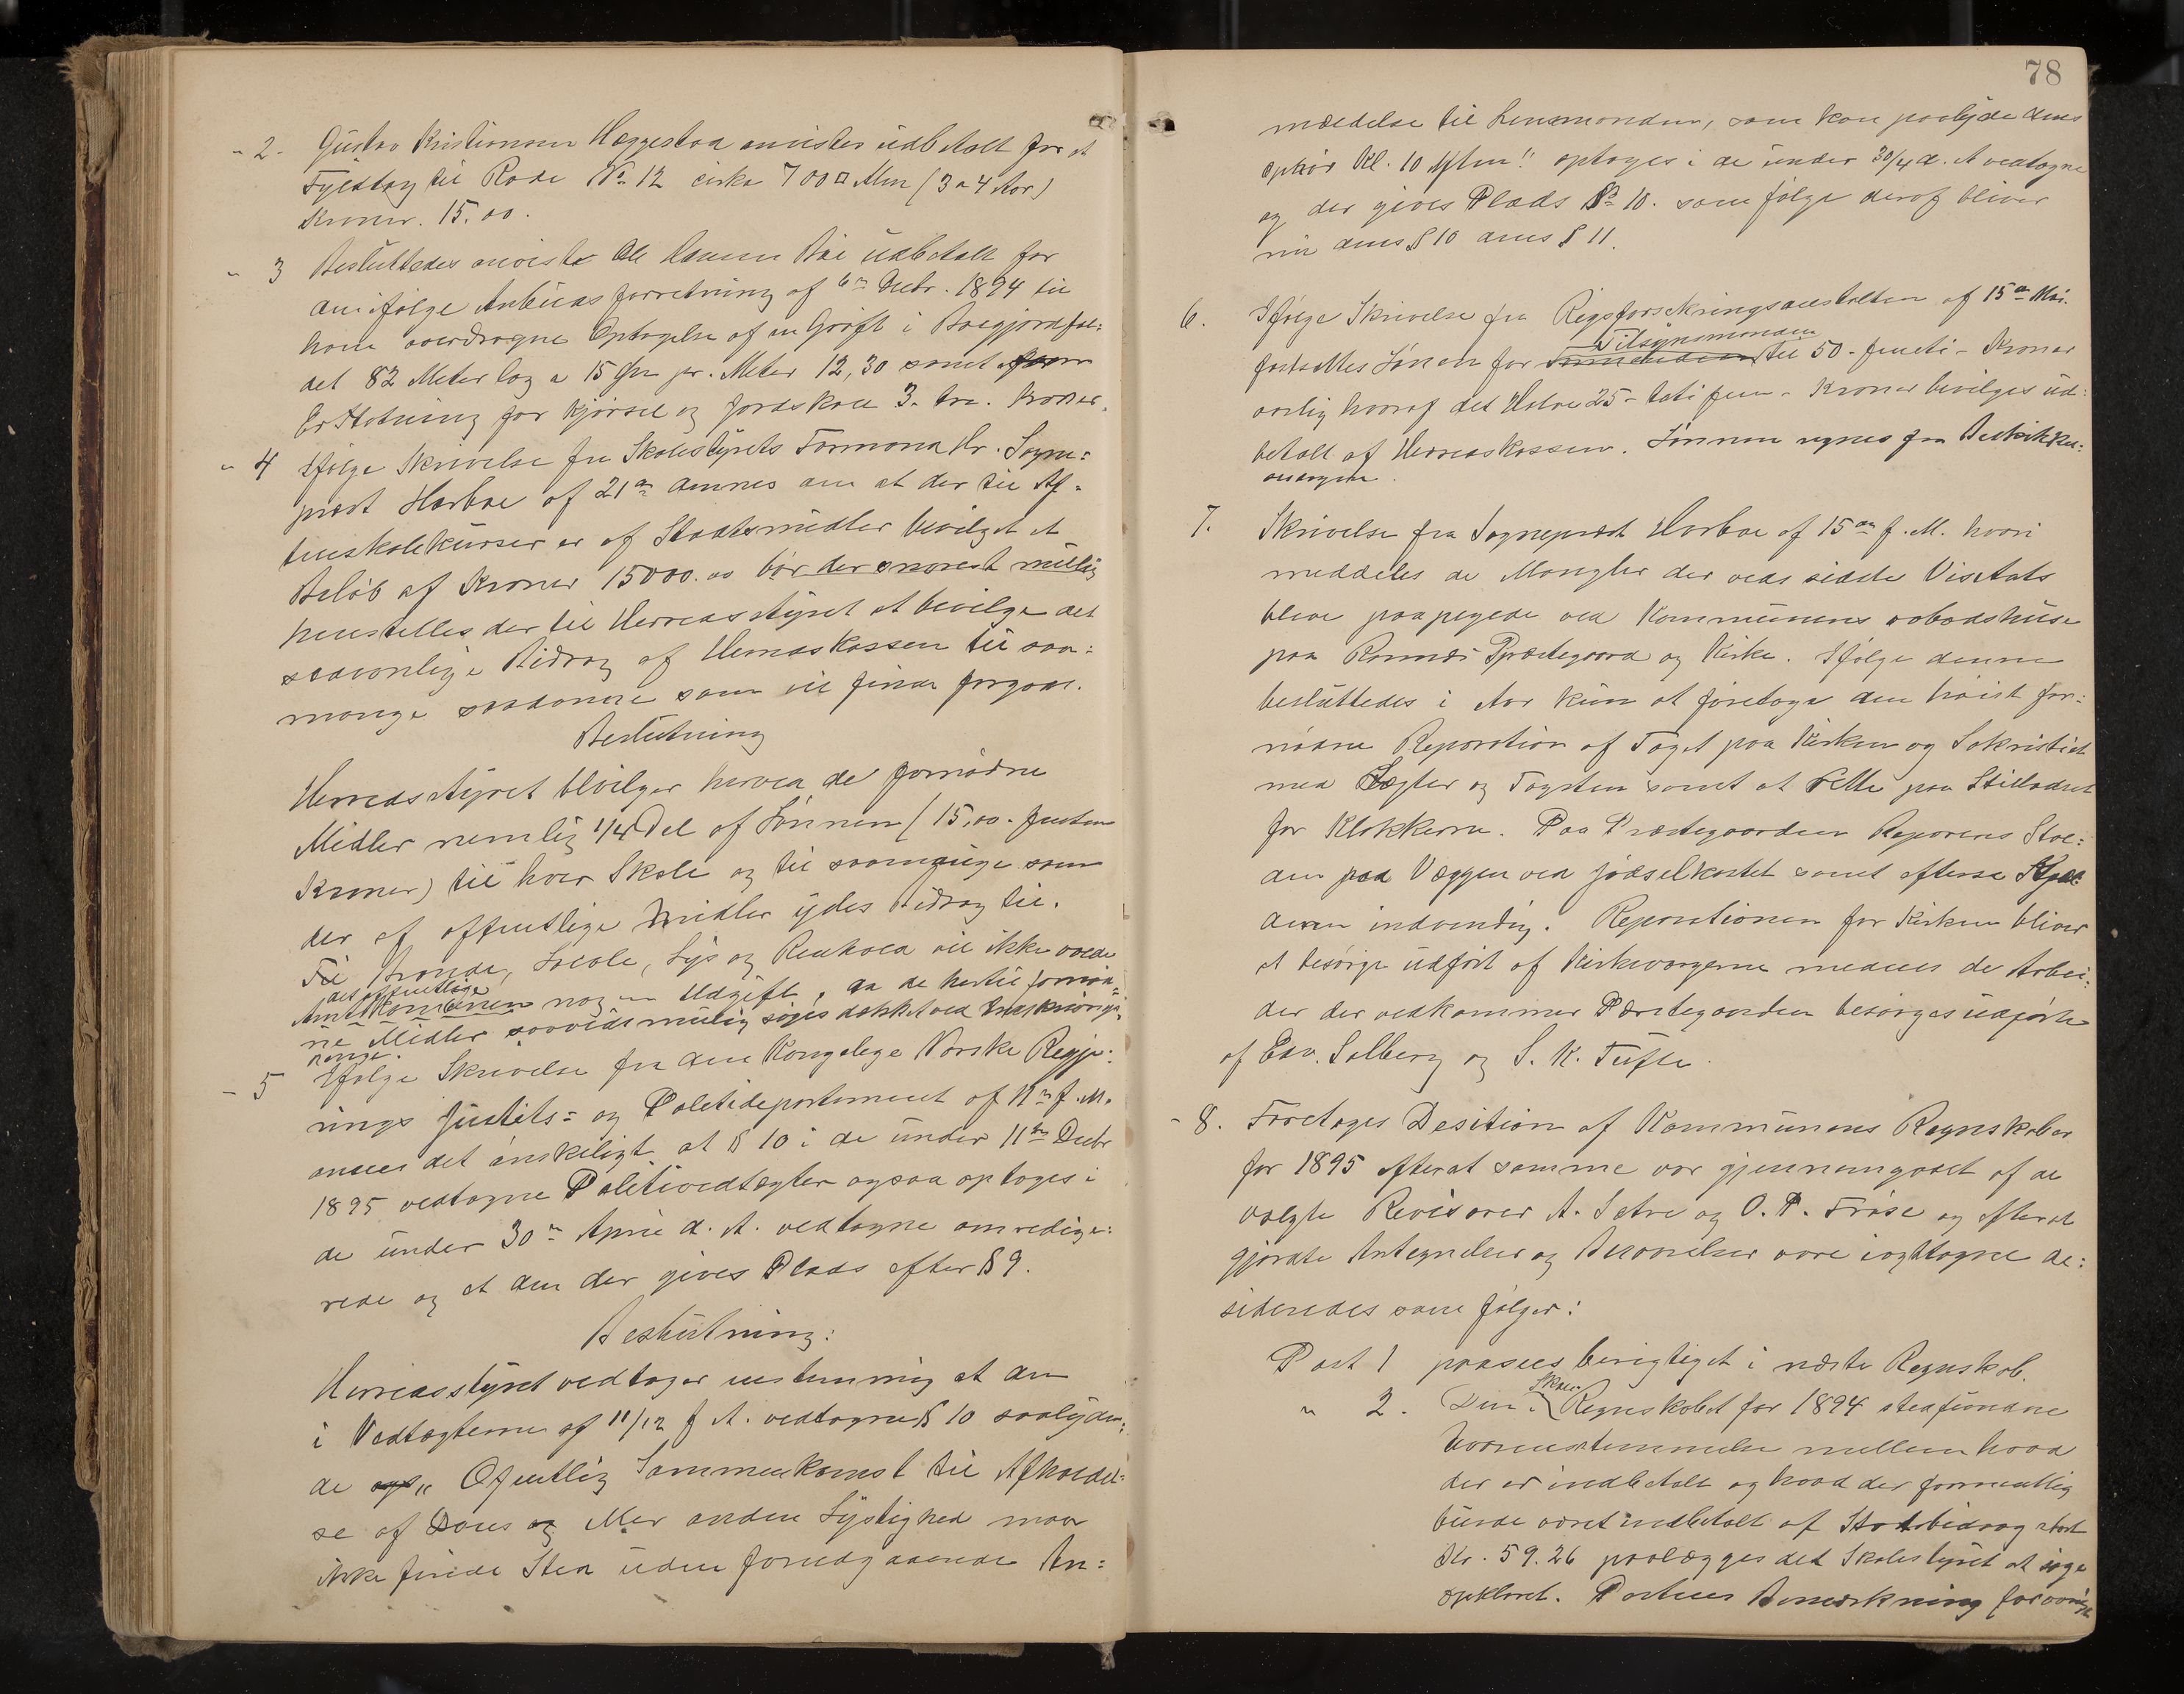 - 2. Gustav Kristiansen Hæggestad anvistes udbetalt for et
Fyldtag til Rode No 12 cirka 700 □ Alen (3 a 4 Aar)
Kroner. 15.00.
" 3 Besluttedes anviste Ole Hansen Bøe udbetalt for
den ifølge Anbuds forretning af 6te Decbr. 1894 til
ham overdragne Optagelse af en Grøft i
det 82 Meter lag a 15 Øre pr. Meter 12,30 samt
Erstatning for Kjørsel og Jordskade 3. tre. Kroner.
" 4 Ifølge Skrivelse fra Skolestyrets Formand Hr. Sogne=
præst Harboe af 21de ds om at der til Af=
tenskolekurser er af Statsmidler bevilget et
Beløb af Kroner 15000.00 bør der snarest mulig
henstilles der til Herredsstyret at bevilge det
sædvanlige Bidrag af Herredskassen til saa=
mange saadanne som vil finde forgaa.
Beslutning
Herredsstyret bevilger herved de fornødne
Midler nemlig 1/4 Del af Lønnen (15.00. femten
Kroner) til hver Skole og til saamange som
der af offentlige Midler ydes Bidrag til.
Til Brænde, Locale, Lys og Renhold vil ikke volde
det offentlige
Amtskommunen nogen Udgift, da de hertil fornød=
ne Midler saavidt mulig søges dækket ved
penge.
- 5 Ifølge Skrivelse fra den Kongelige Norske Regje=
rings Justits= og Politidepartement af 11te f. M.
ansees det ønskeligt at § 10 i de under 11te Decbr
1895 vedtagne Politivedtægter ogsaa optages i
de under 30te April d. A. vedtagne omredige=
rede og at den der gives Plads efter § 9.
Beslutning:
Herredsstyret vedtager enstemmig at den
i Vedtægterne af 11/12 f A. vedtagne § 10 saalyden=
de „Ofentlig Sammenkomst til Afholdel=
se af Dans og eller anden Lystighed maa
ikke finde Sted uden foregaaende An=
78
meldelse til Lensmanden, som kan paabyde dens
ophør Kl. 10 Aften" optages i de under 30/4 d. A vedtagne
og der gives Plads No 10. som følge deraf bliver
nu dens § 10 dens § 11.
6. Ifølge Skrivelse fra Rigsforsikringsanstalten af 15de Mai.
Tilsynsmanden
fastsættes Lønnen for til 50 - femti - Kroner
aarlig hvoraf det Halve 25 - toti fem - Kroner bevilges ud=
betalt af Herredskassen. Lønnen regnes fra
7. Skrivelse fra Sognepræst Harboe af 15de f. M. hvori
meddeles de Mangler der ved sidste Visitats
bleve paapegede ved Kommunens
paa Ramnes Præstegaard og Kirke. Ifølge denne
besluttedes i Aar kun at foretage den høist for=
nødne Reparation af Taget paa Kirken og Sakristiet
med Lægter og Tagsten samt at rette paa Stilladset
for Klokkerne. Paa Præstegaarden Reparens Stal=
den paa Væggen ved Gjødselkastet samt efterse
denne indvendig. Reparationen for Kirken bliver
at besørge udført af Kirkeværgerne medens de Arbei=
der der vedkommer Præstegaarden besørges udførte
af Edv. Solberg og S. K. Tufte.
- 8. Foretages Desition af Kommunens Regnskaber
for 1895 efterat samme var gjennemgaaet af de
valgte Revisorer A. Sætre og O. P. Frøse og efterat
gjordte Antegnelser og Besvarelser vare iagttagne de=
sideredes som følger:
Post 1 paasees berigtiget i næste Regnskab.
" 2. Den i Skole Regnskabet for 1894 stedfundne
Uoverenstemmelse mellem hvad
der er indbetalt og hvad der formentlig
burde været indbetalt af Statsbidrag stort
Kr. 59.26 paalægges det Skolestyret at søge
opklaret. Postens Bemærkning forøvrigt